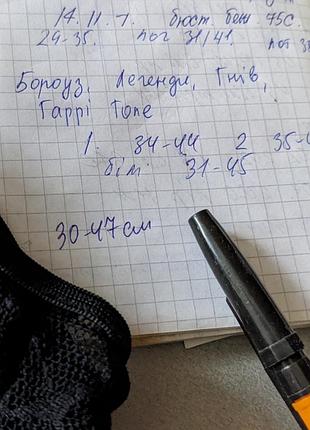 14. 11. 7. бюст. беж. 75С.
29-35. пог 31/41. пот 3
Бороуз, Легенди, Гнів,
Гаррі Поте
1. 34-44 2 35-4
бім. 31-45
30-47см